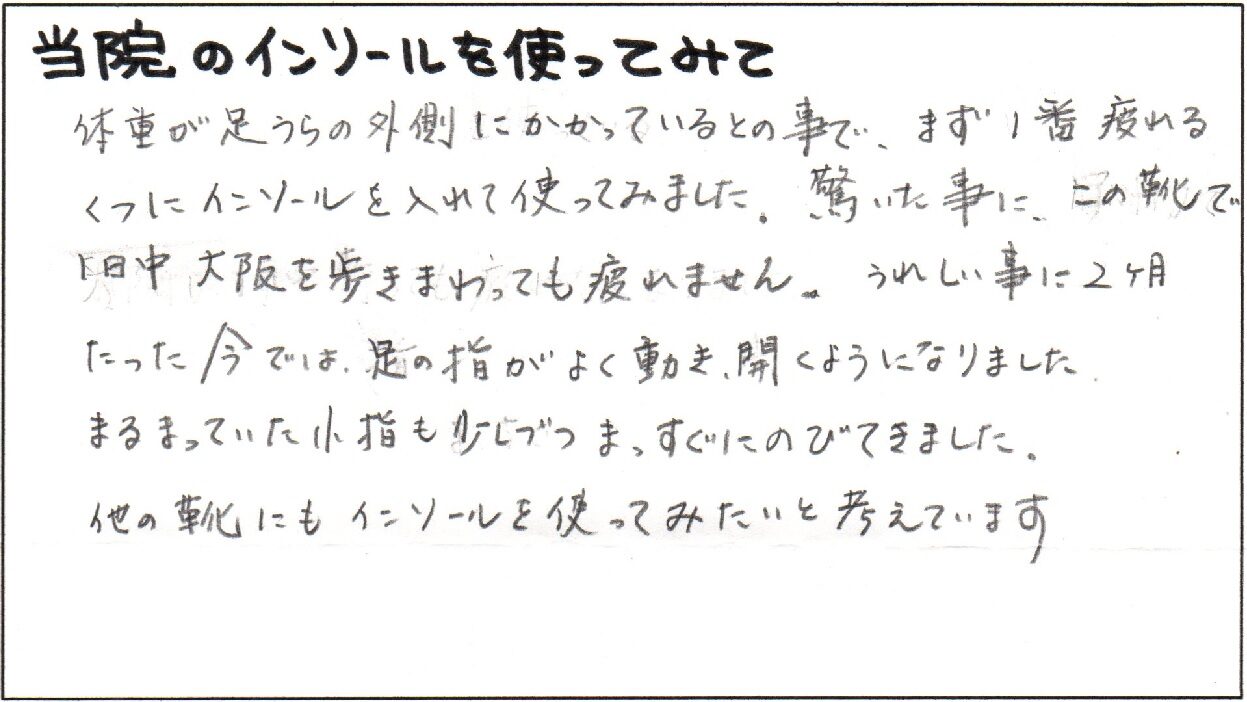 当院のインソールを使ってみて
体重が足うらの外側にかかっているとの事で、まず1番疲れる
くつにインソールを入れて使ってみました。驚いた事に、この靴で
1日中大阪を歩きまわっても疲れません。うれしい事に2ヶ月
たった今では、足の指がよく動き、開くようになりました
まるまっていた小指も少しづつまっすぐにのびてきました。
他の靴にもインソールを使ってみたいと考えています